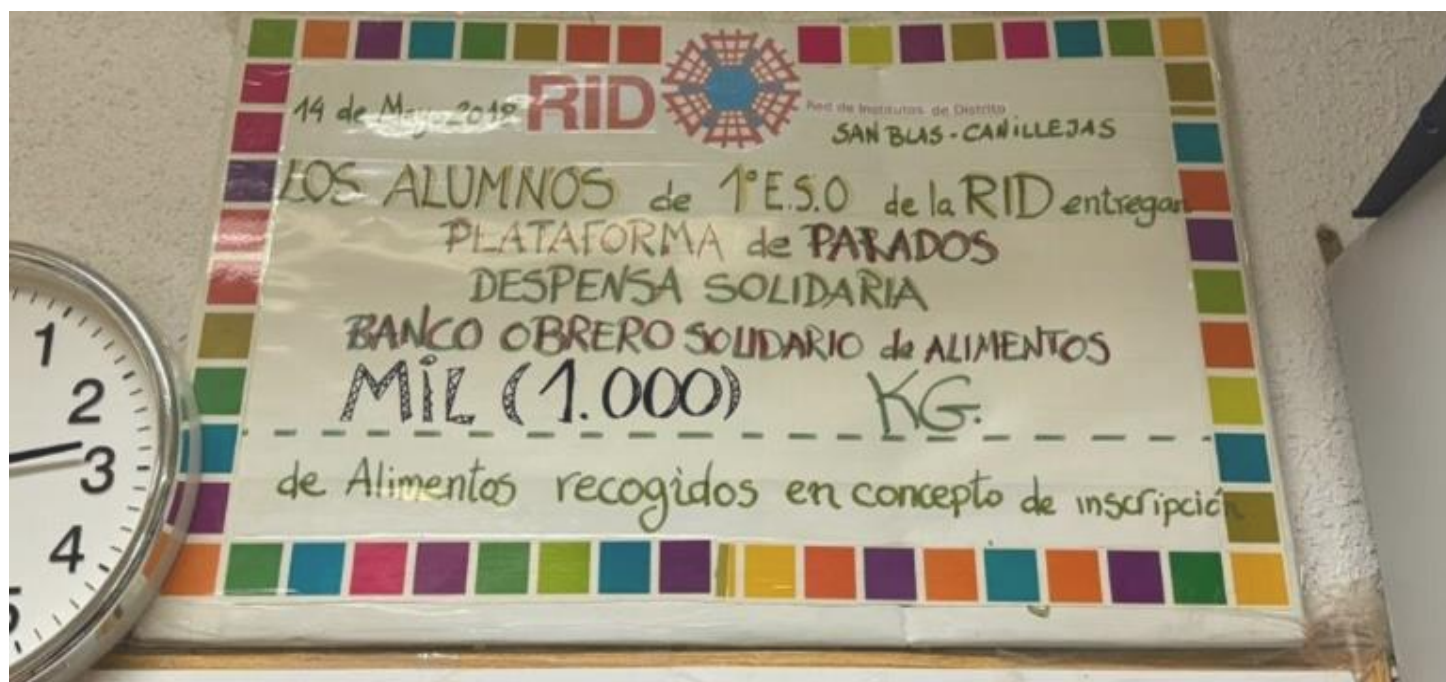 14 de Mayo 2018 RID Red de Institutos de Distrito
SAN BLAS - CANILLEJAS
LOS ALUMNOS de 1º E.S.O de la RID entregan
PLATAFORMA de PARADOS
DESPENSA SOLIDARIA
BANCO OBRERO SOLIDARIO de ALIMENTOS
MIL (1.000) KG.
de Alimentos recogidos en concepto de inscripción
1
2
3
4
5